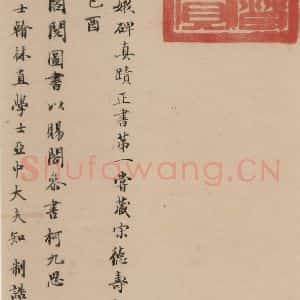 娥碑真蹟正書第一嘗藏宗德壽
己酉
閣閱圖書以賜閣參書柯九思
士翰林直學士亞中大夫知制誥
Shufawang.CN